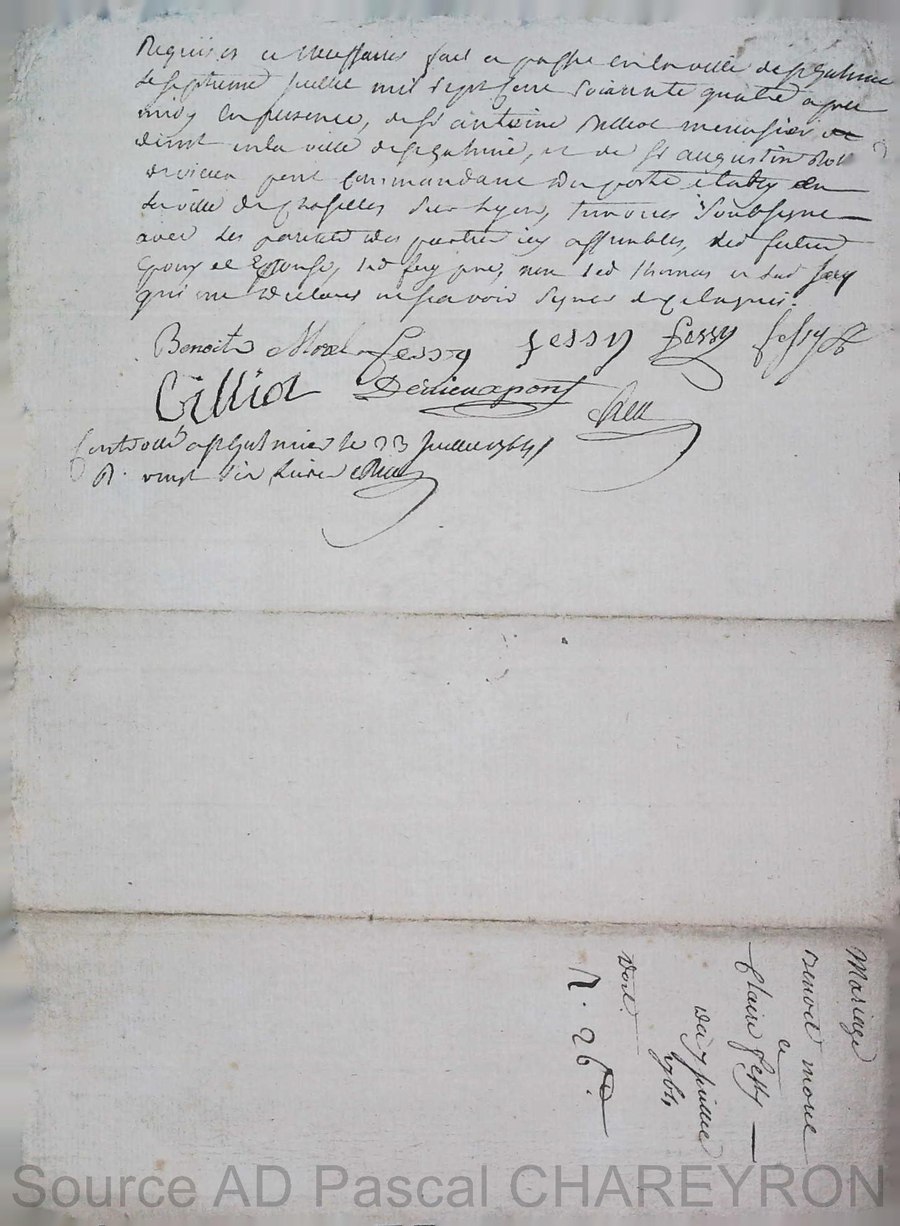 Requises et necessaires fait et passé en la ville de st galmier
le septieme juillet mil sept cent soixante quatre apres
midy en presence, de sr antoine billiot menuisier
en la ville de st galmier, et de sr augustin
devieux pont commandant du poste etably en
la ville de chaselles sur lyon, temoins soubsignes
avec les parties icy assembles, led futur
epoux et Epouse, led fessy pere, non led thomas et lad fessy
qui ont declares ne scavoir signer de ce enquis.
Benoit Morel fessy fessy fessy fessy
Billiot Devieuxpont
Controllé a st galmier le 23 juillet 1764
R. vingt six livres
Mariage
Benoit morel
et
Claire fessy
Du 7 juillet
1764
R. 26
Source AD Pascal CHAREYRON